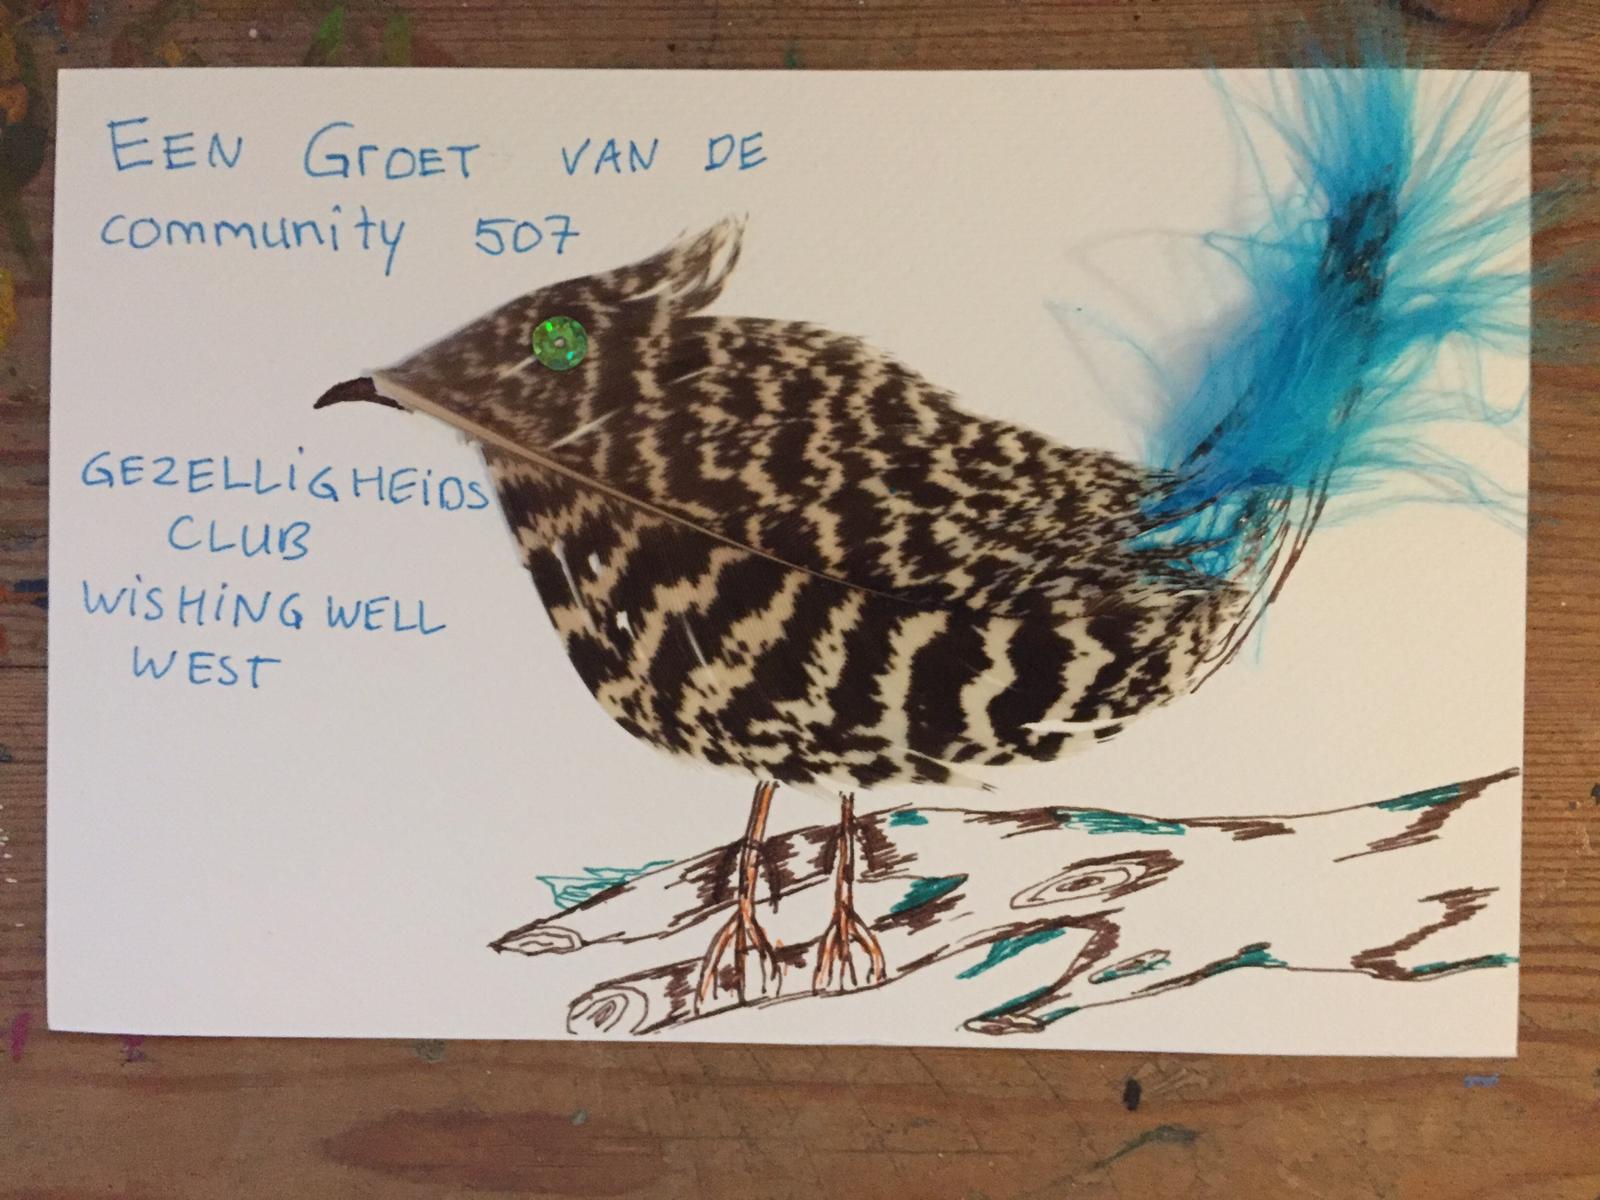 EEN GrOET VAN DE
community 507
GEZELLiGHEiDS
CLUB
WiSHiNG WELL
WEST